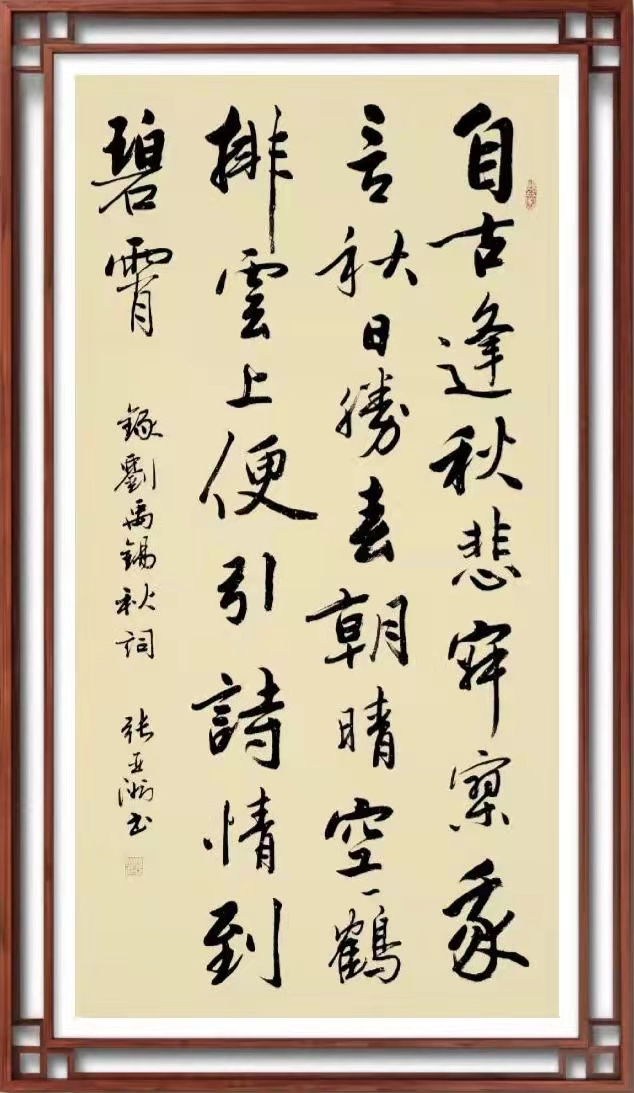 自古逢秋悲寂寥我
言秋日勝春朝晴空一鶴
排雲上便引詩情到
碧霄
錄劉禹錫秋詞 張亚洲书